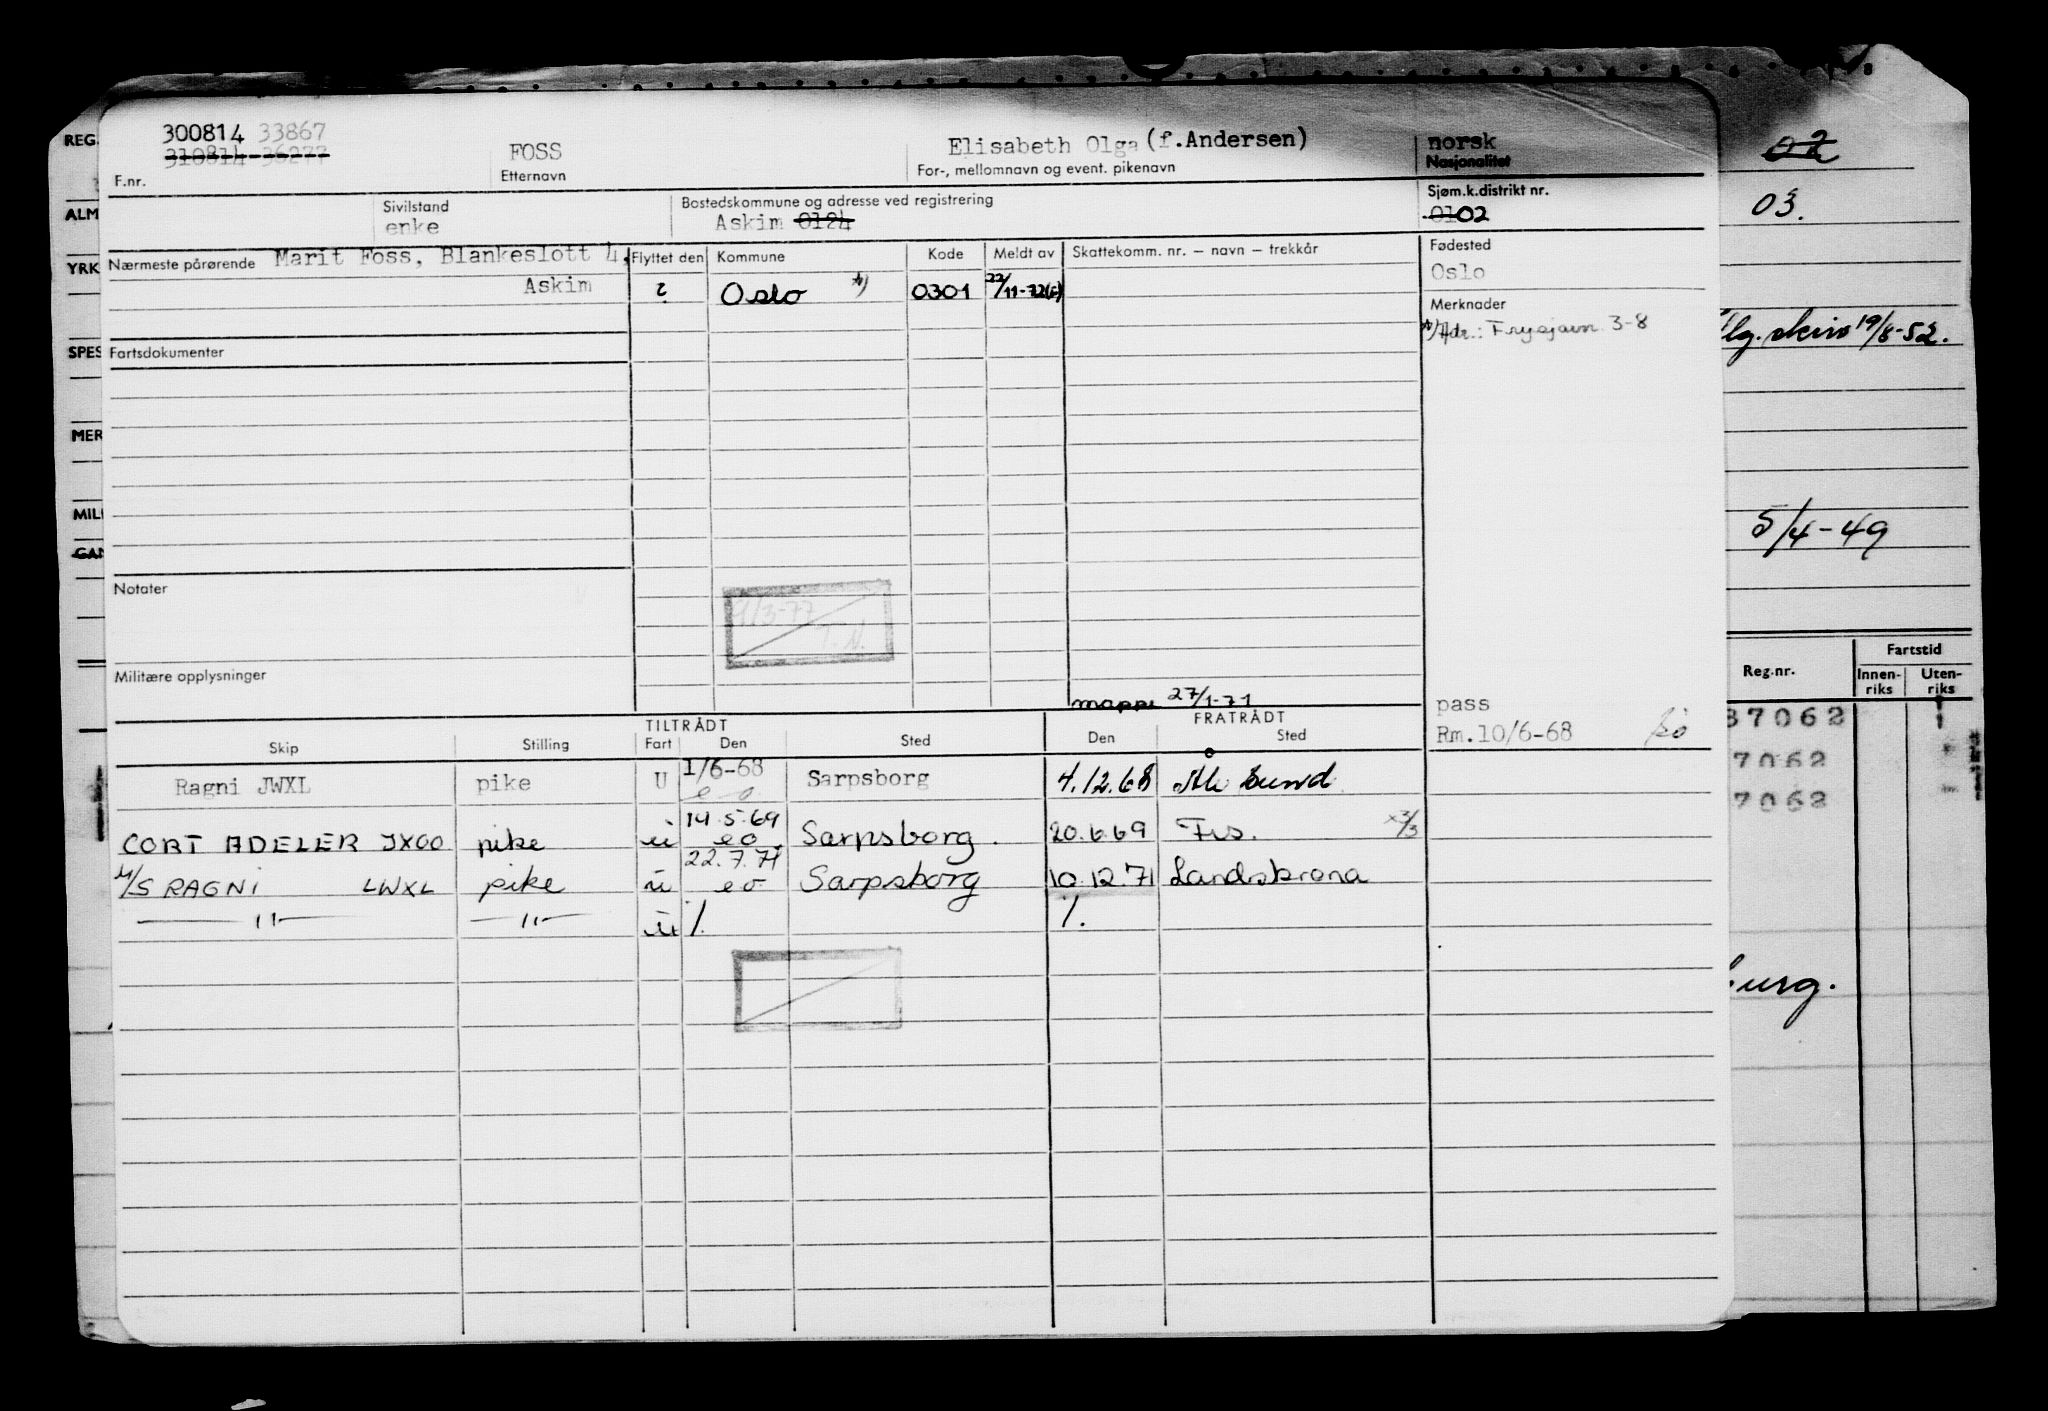 300814 33867
310814 36277
F.nr.
FOSS
Etternavn
Elisabeth Olga (f.Andersen)
For-, mellomnavn og event. pikenavn
norsk
Nasjonalitet
Sivilstand
enke
Bostedskommune og adresse ved registrering
Askim 0124
Sjøm.k.distrikt nr.
0102
Nærmeste pårørende Marit Foss, Blankeslott 4,
Askim
Flyttet den Kommune Kode Meldt av Skattekomm. nr. – navn – trekkår
? Oslo *) 0301 22/11-72(E)
Fødested
Oslo
Merknader
*) Adr.: Frysjavn. 3-8
Fartsdokumenter
Notater
9/3-77
T.M.
Militære opplysninger
mappe 27/1-71
pass
Rm.10/6-68
TILTRÅDT FRATRÅDT
Skip Stilling Fart Den Sted Den Sted
Ragni JWXL pike U 1/6-68 Sarpsborg 4.12.68 Åle sund
e o
CORT ADELER JXOO pike u 14.5.69 Sarpsborg. 20.6.69 Frs. x3/3
e o
M/S RAGNI LWXL pike u 22.7.71 Sarpsborg 10.12.71 Landskrona
e o
—"— —"— u %. %.
REG.
ALM
YRK
SPES
MER
MILI
GAN
02
03.
lg. skriv 19/8-52.
5/4-49
Reg.nr. Fartstid
Innen-riks Uten-riks
37062
7062
7062
urg.